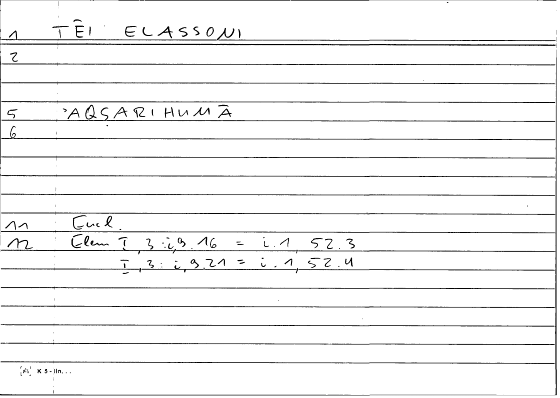 1 TÊI ELASSONI
2
5 'AQṢARIHUMĀ
6
11 Eucl.
12 Elem I, 3: i, 9.16 = i.1, 52.3
I, 3: i, 9.21 = i.1, 52.4
K 5 - lin. . .